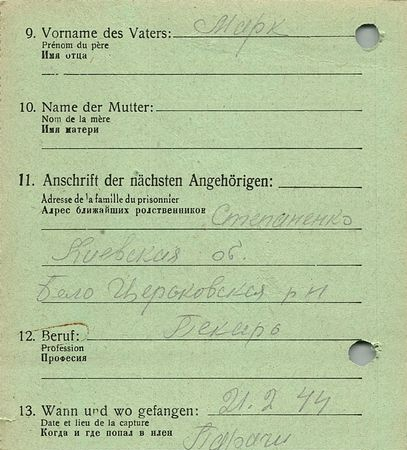 9. Vorname des Vaters: Марк
Prénom du père
Имя отца
10. Name der Mutter:
Nom de la mère
Имя матери
11. Anschrift der nächsten Angehörigen:
Adresse de la famille du prisonnier
Адрес ближайших родственников Степаненко
Киевская об.
Бело Церьковская р н
12. Beruf: Пекарь
Profession
Професия
13. Wann und wo gefangen: 21. 2 44
Date et lieu de la capture
Когда и где попал в плен